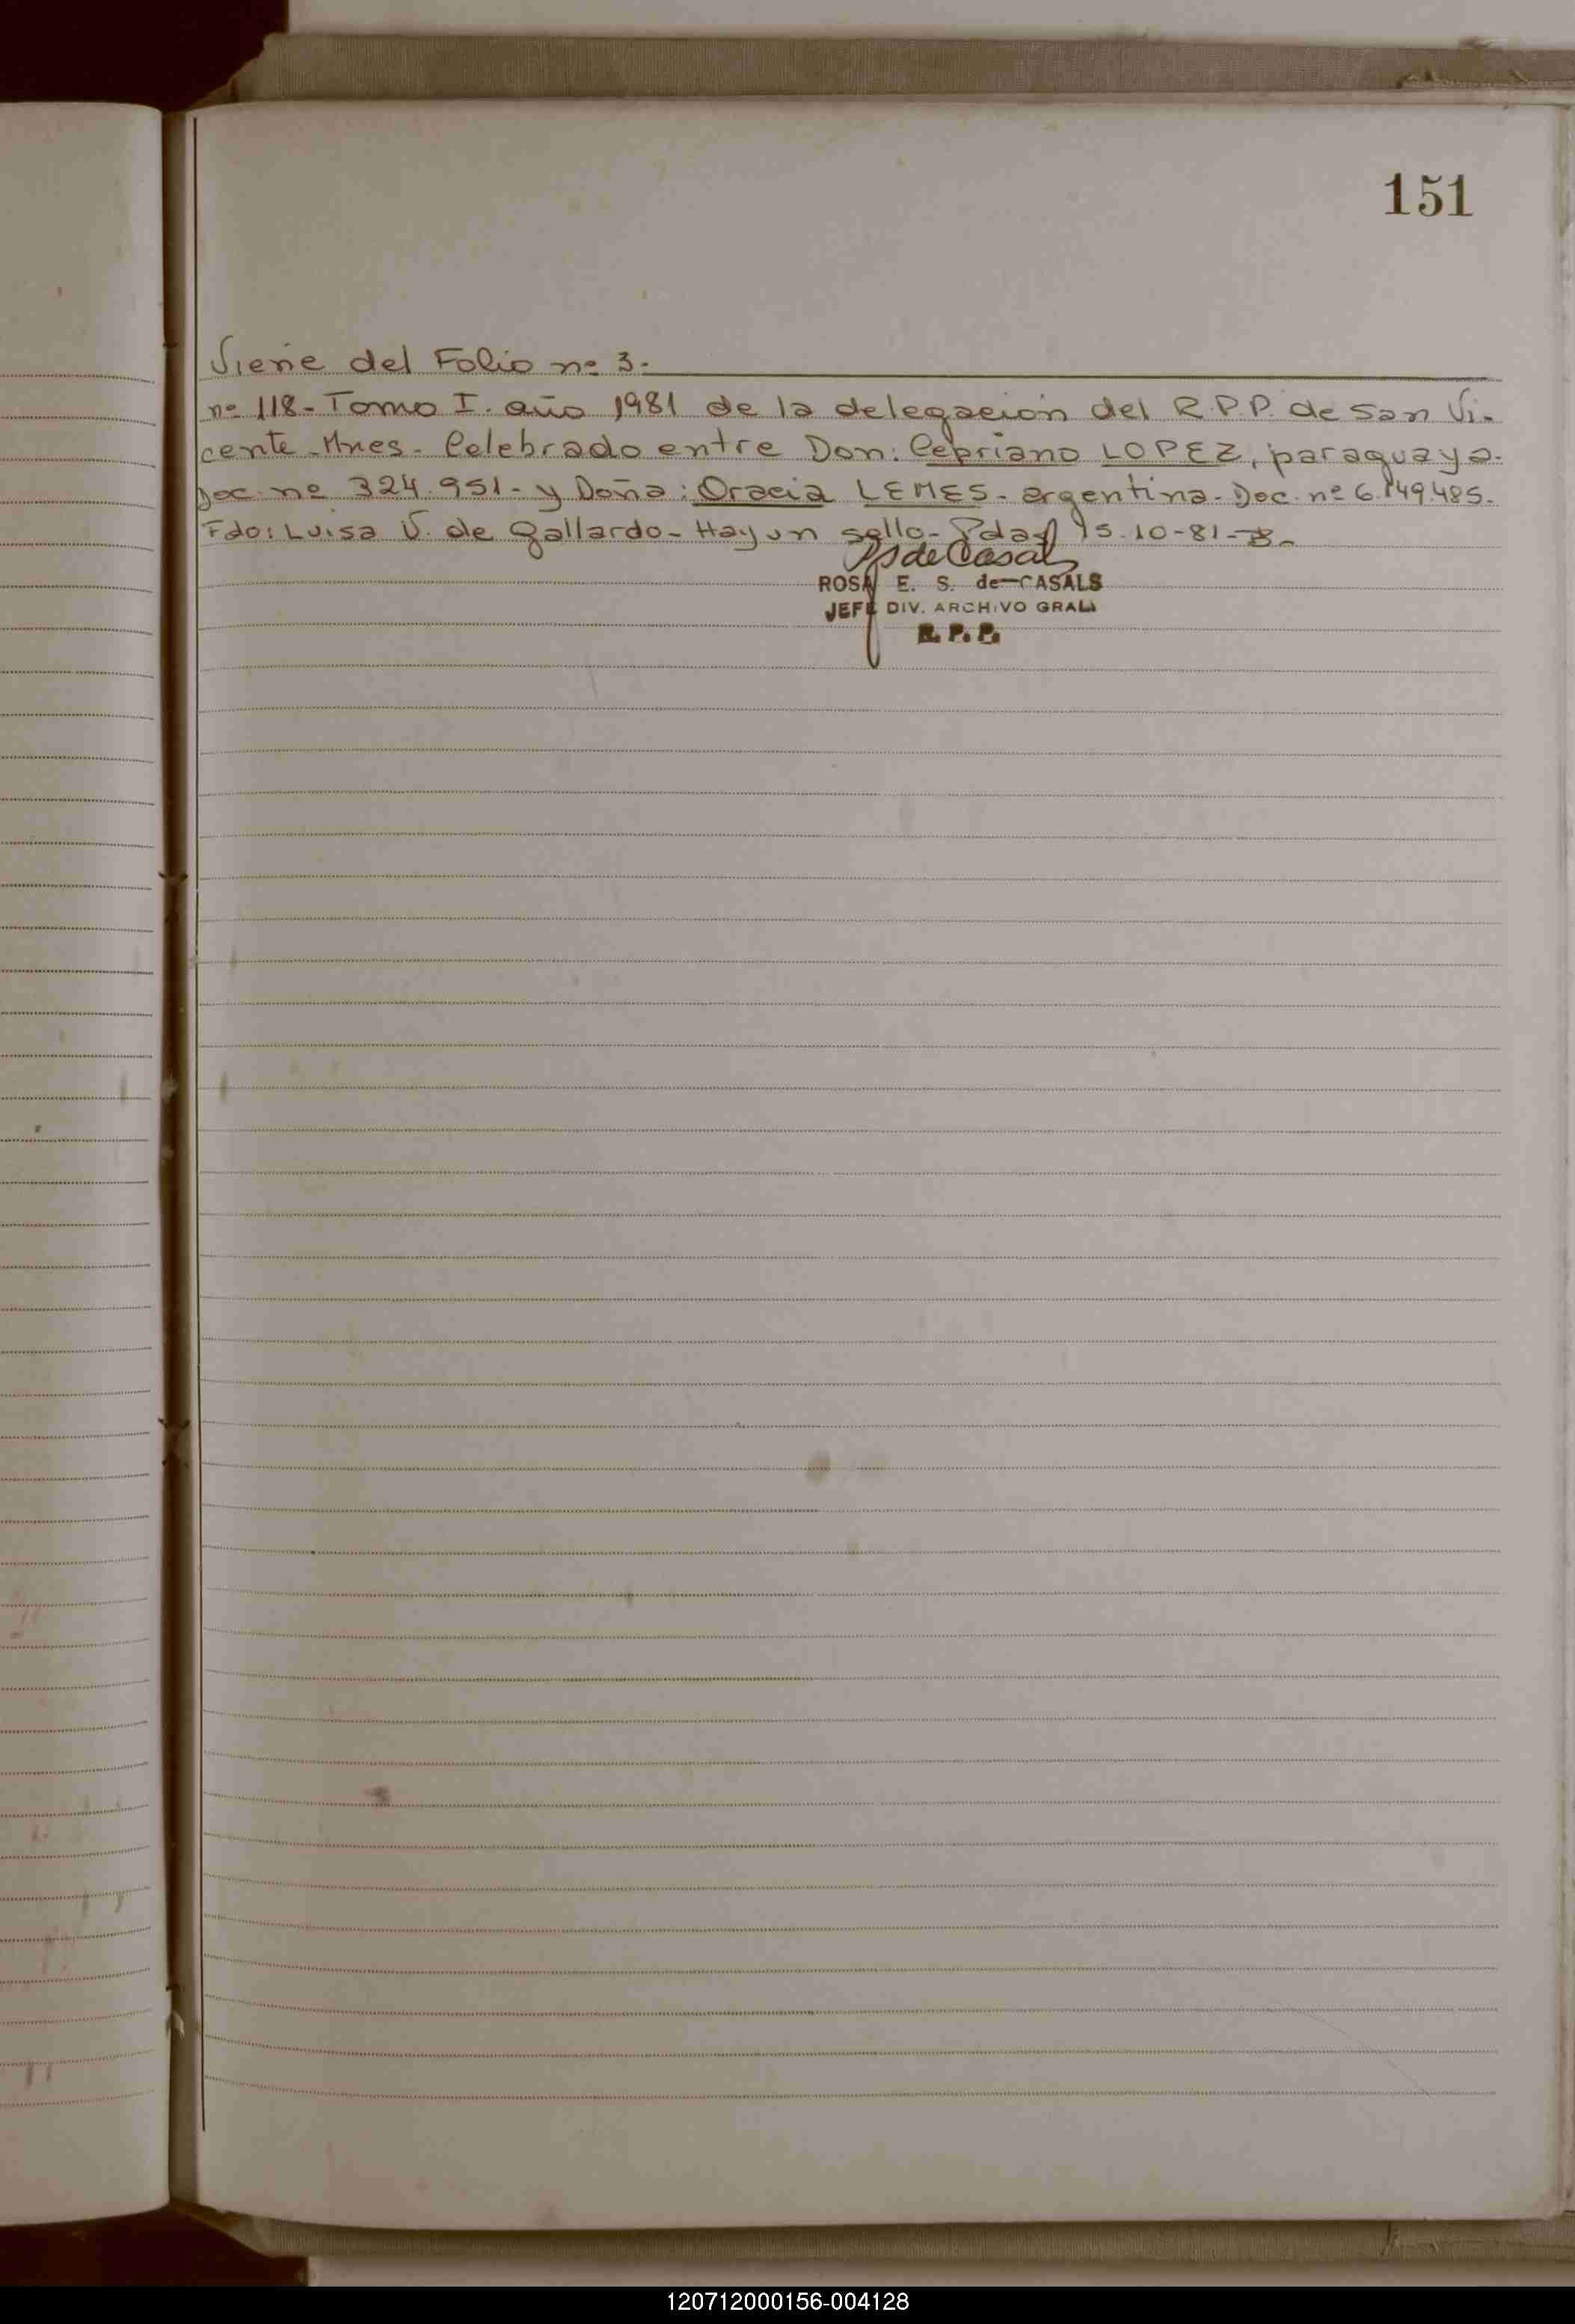 151
Viene del Folio nº 3-
nº 118- Tomo I. año 1981 de la delegacion del R.P.P. de San Vi-
cente-Mnes- Celebrado entre Don: Cepriano LOPEZ, paraguayo-
Doc. nº 324.951- y Doña: Oracia LEMES- argentina- Doc. nº 6.149.485-
Fdo: Luisa V. de Gallardo- Hay un sello- Pdas 15-10-81-
RS de Casals
ROSA E. S. de CASALS
JEFE DIV. ARCHIVO GRAL
R. P. P.
120712000156-004128